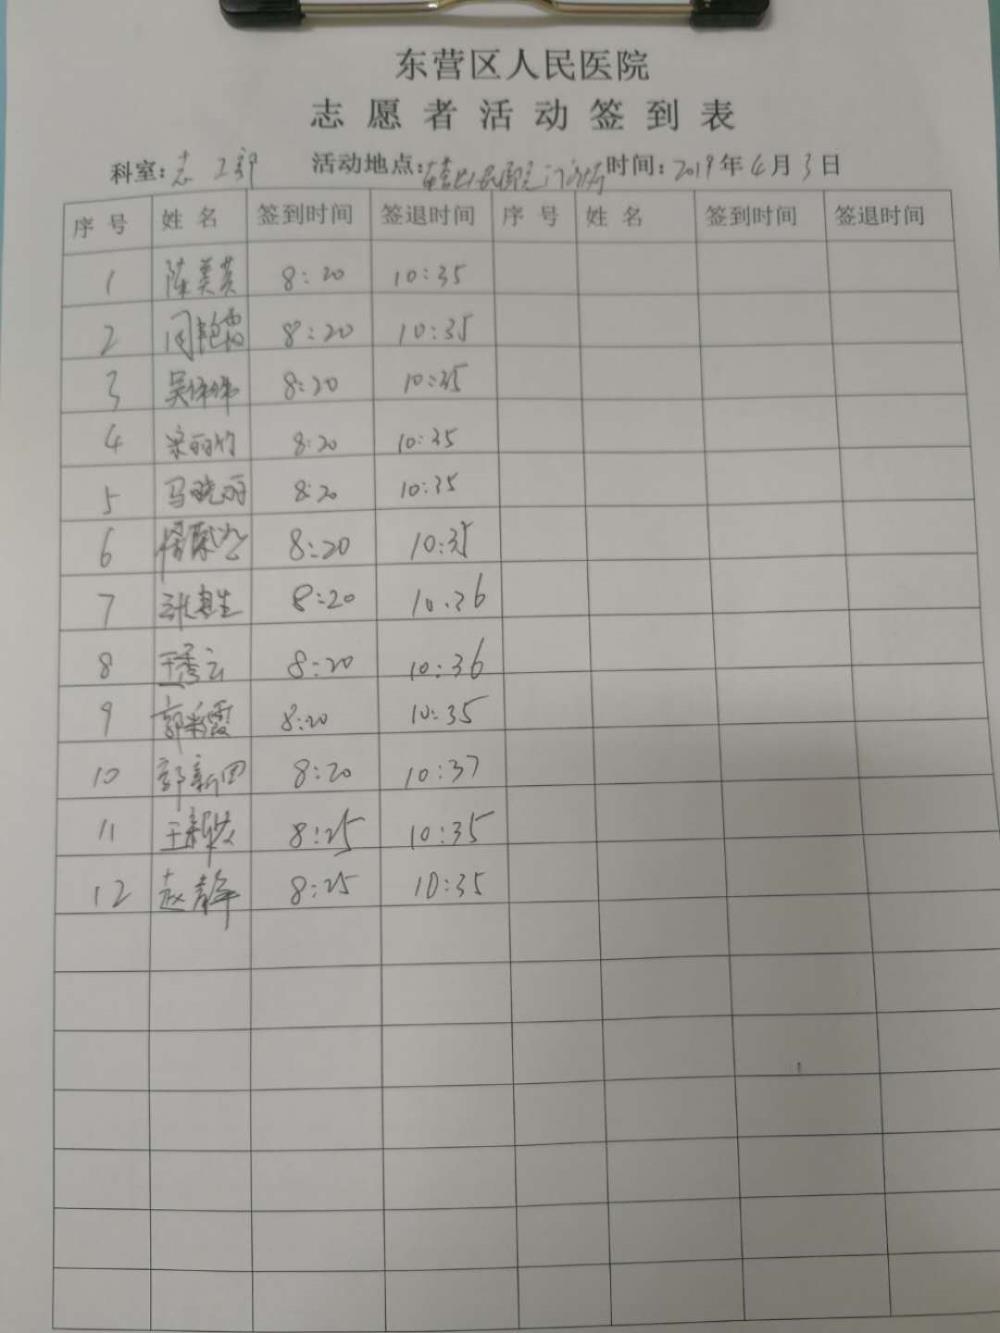 东营区人民医院
志愿者活动签到表
科室:志工部 活动地点: 时间:2019年4月3日
序号 姓名 签到时间 签退时间 序号 姓名 签到时间 签退时间
1 陈美英 8:20 10:35
2 周艳霞 8:20 10:35
3 吴 8:20 10:35
4 宋丽竹 8:20 10:35
5 马晓丽 8:20 10:35
6 8:20 10:35
7 张惠生 8:20 10.36
8 王秀云 8:20 10:36
9 郭彩霞 8:20 10:35
10 郭新田 8:20 10:37
11 王新发 8:25 10:35
12 赵静 8:25 10:35